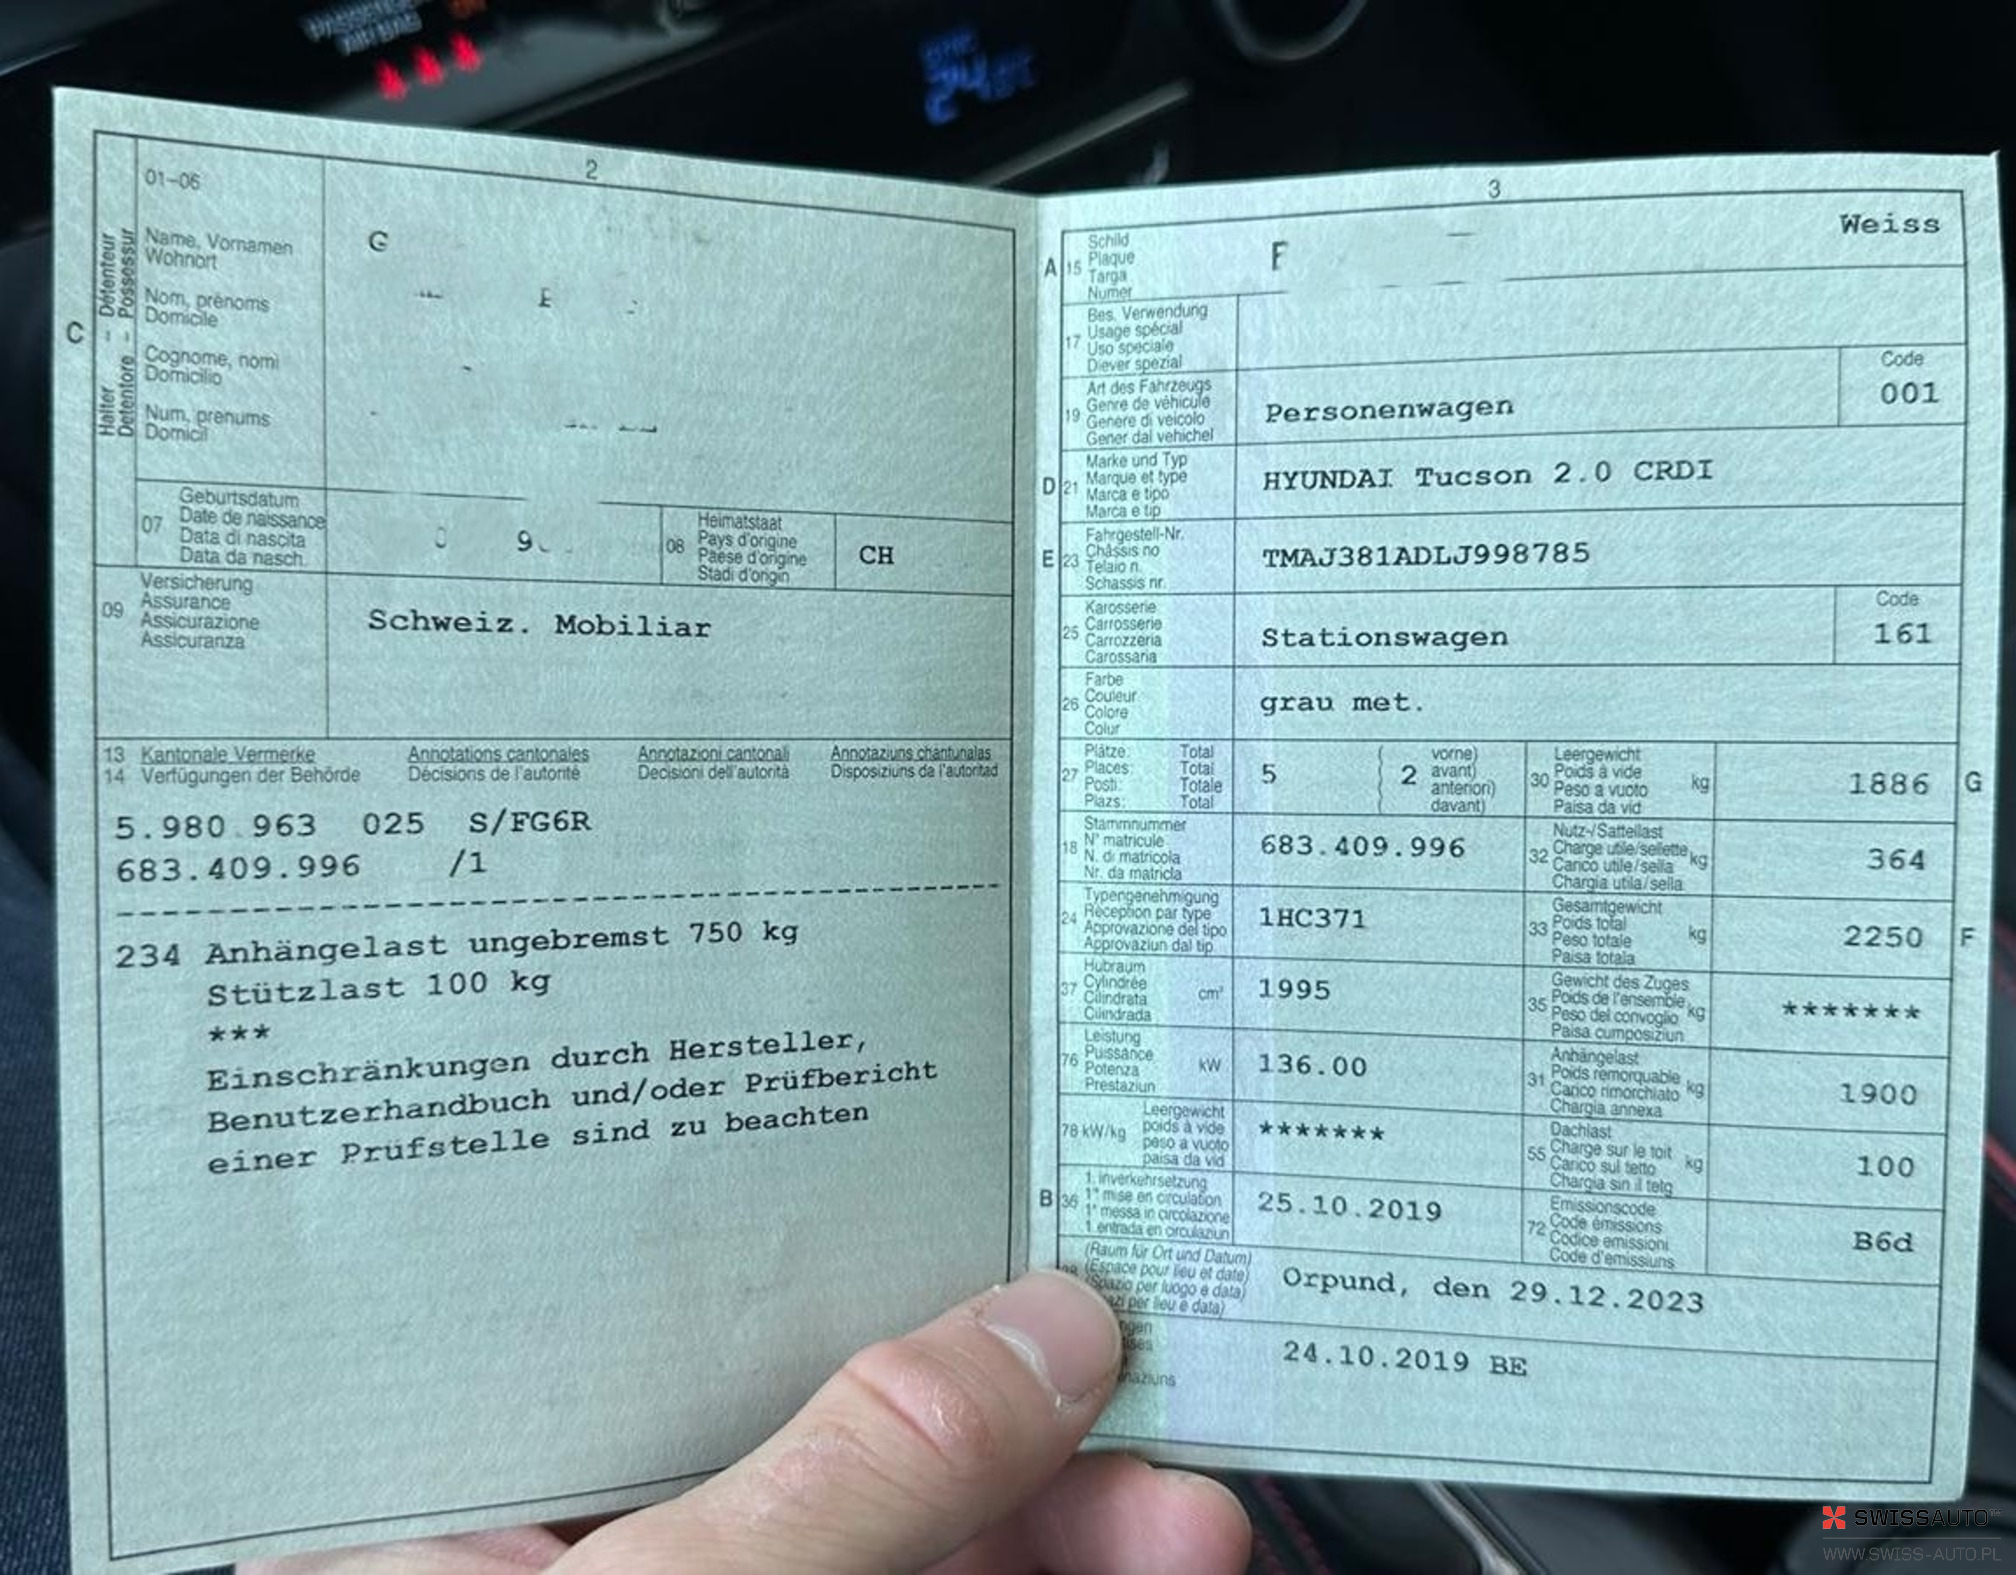 2
01-06
Name, Vornamen
Wohnort
Nom, prénoms
Domicile
Cognome, nomi
Domicilio
Num, prenums
Domicil
C
Halter - Détenteur
Detentore - Possessur
G
E
07
Geburtsdatum
Date de naissance
Data di nascita
Data da nasch.
9
08
Heimatstaat
Pays d'origine
Paese d'origine
Stadi d'origin
CH
09
Versicherung
Assurance
Assicurazione
Assicuranza
Schweiz. Mobiliar
13 Kantonale Vermerke Annotations cantonales Annotazioni cantonali Annotaziuns chantunalas
14 Verfügungen der Behörde Décisions de l'autorité Decisioni dell'autorità Disposiziuns da l'autoritad
5.980.963 025 S/FG6R
683.409.996 /1
234 Anhängelast ungebremst 750 kg
Stützlast 100 kg
***
Einschränkungen durch Hersteller,
Benutzerhandbuch und/oder Prüfbericht
einer Prüfstelle sind zu beachten
3
A 15
Schild
Plaque
Targa
Numer
Weiss
17
Bes. Verwendung
Usage spécial
Uso speciale
Diever spezial
19
Art des Fahrzeugs
Genre de véhicule
Genere di veicolo
Gener dal vehichel
Personenwagen
Code
001
D 21
Marke und Typ
Marque et type
Marca e tipo
Marca e tip
HYUNDAI Tucson 2.0 CRDI
E 23
Fahrgestell-Nr.
Châssis no
Telaio n.
Schassis nr.
TMAJ381ADLJ998785
25
Karosserie
Carrosserie
Carrozzeria
Carossaria
Stationswagen
Code
161
26
Farbe
Couleur
Colore
Colur
grau met.
27
Plätze: Total
Places: Total
Posti: Totale
Plazs: Total
5
( 2
vorne)
avant)
anteriori)
davant)
30
Leergewicht
Poids à vide
Peso a vuoto
Paisa da vid
kg
1886
G
18
Stammnummer
N° matricule
N. di matricola
Nr. da matricla
683.409.996
32
Nutz-/Sattellast
Charge utile/sellette
Carico utile/sella
Chargia utila/sella
kg
364
24
Typengenehmigung
Réception par type
Approvazione del tipo
Approvaziun dal tip
1HC371
33
Gesamtgewicht
Poids total
Peso totale
Paisa totala
kg
2250
F
37
Hubraum
Cylindrée
Cilindrata
Cilindrada
cm³
1995
35
Gewicht des Zuges
Poids de l'ensemble
Peso del convoglio
Paisa cumposiziun
kg
*******
76
Leistung
Puissance
Potenza
Prestaziun
kW
136.00
31
Anhängelast
Poids remorquable
Carico rimorchiato
Chargia annexa
kg
1900
78 kW/kg
Leergewicht
poids à vide
peso a vuoto
paisa da vid
*******
55
Dachlast
Charge sur le toit
Carico sul tetto
Chargia sin il tetg
kg
100
B 36
1. Inverkehrsetzung
1° mise en circulation
1° messa in circolazione
1. entrada en circulaziun
25.10.2019
72
Emissionscode
Code émissions
Codice emissioni
Code d'emissiuns
B6d
(Raum für Ort und Datum)
(Espace pour lieu et date)
(Spazio per luogo e data)
per lieu e data)
Orpund, den 29.12.2023
24.10.2019 BE
SWISSAUTO
WWW.SWISS-AUTO.PL